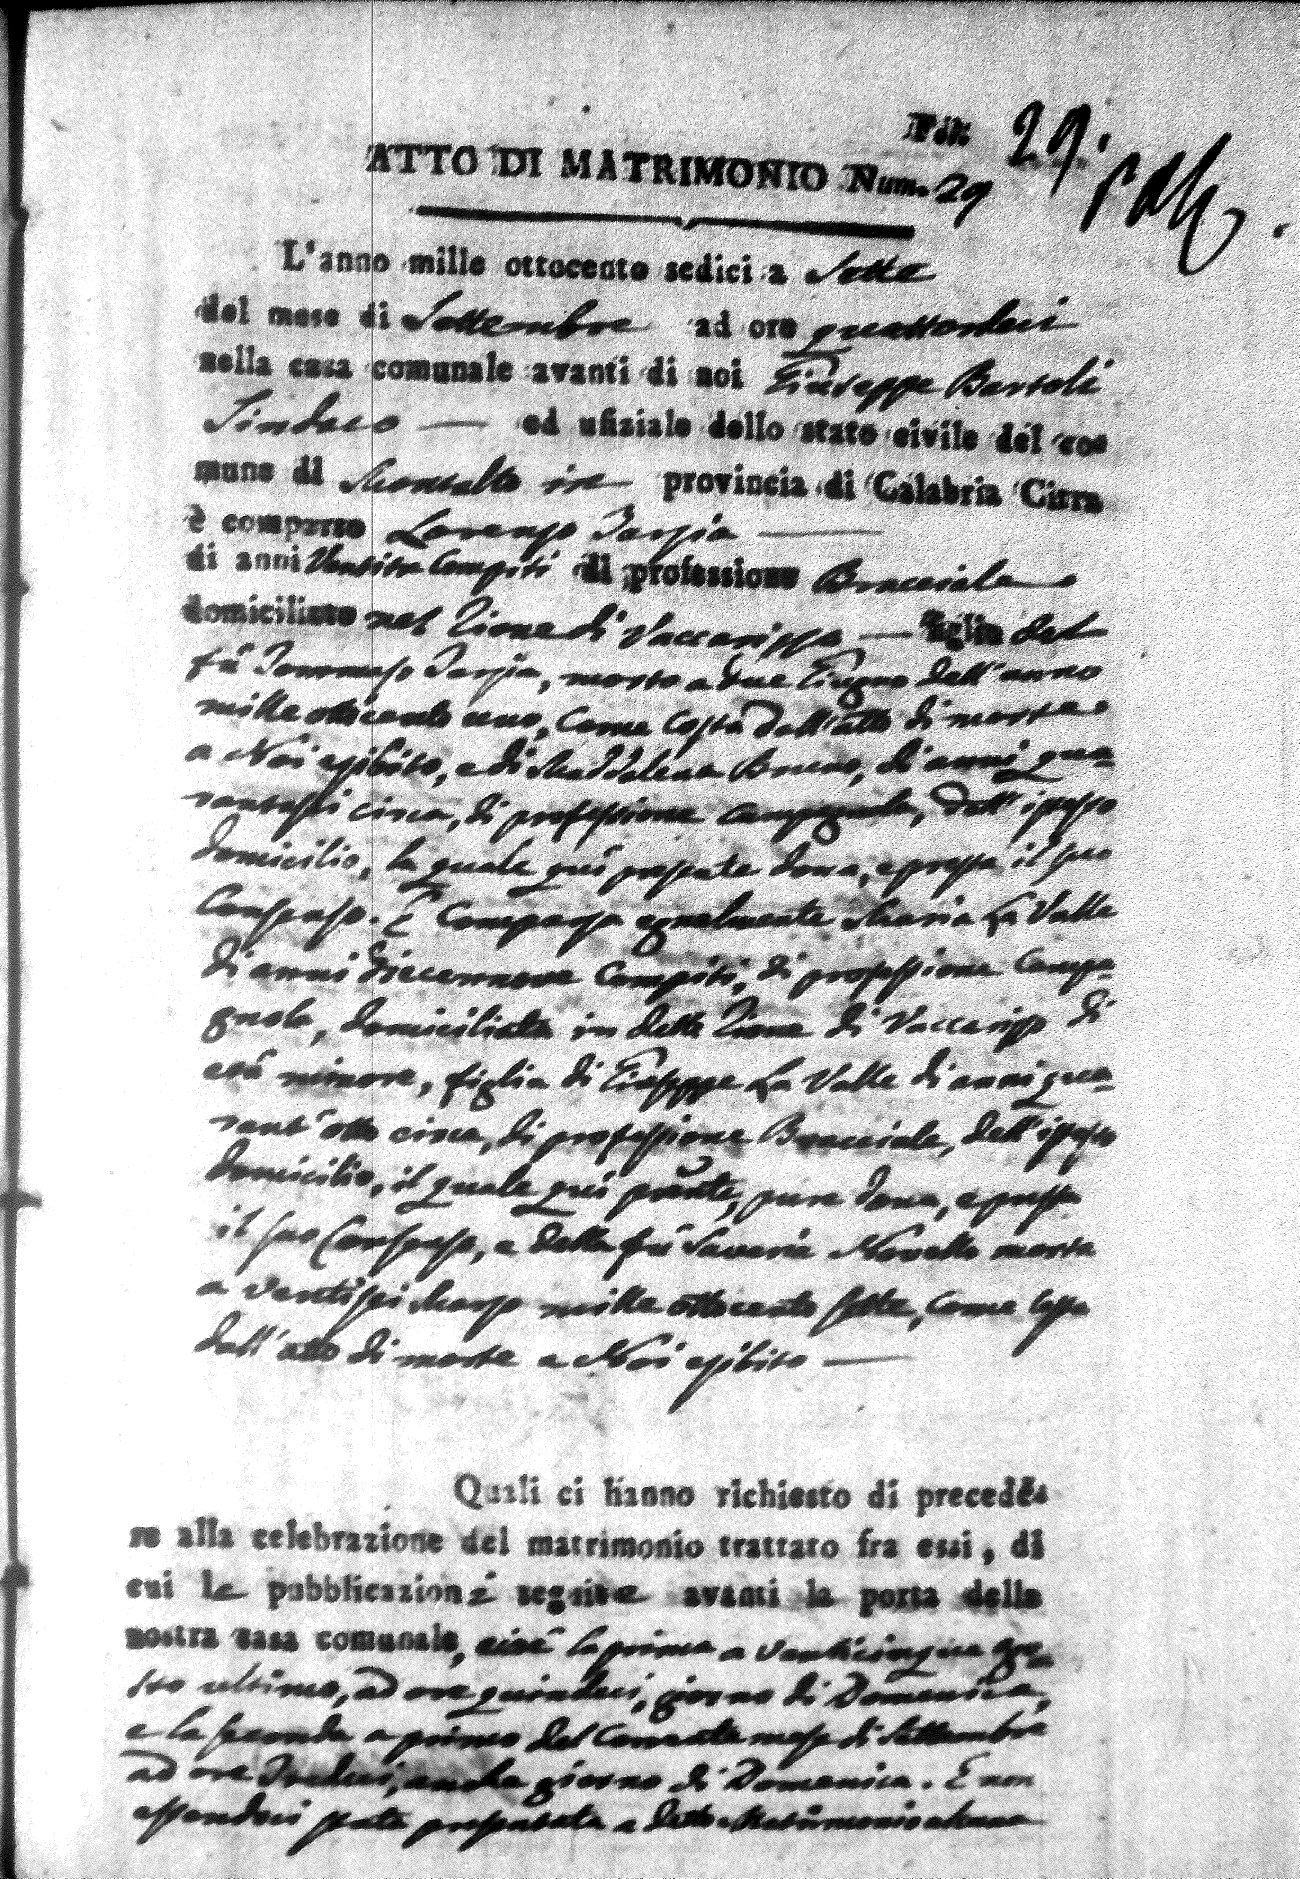 Fol: 29.
ATTO DI MATRIMONIO Num. 29
L'anno mille ottocento sedici a Sette
del mese di Settembre ad ore quattordeci
nella casa comunale avanti di noi Giuseppe Bartoli
Sindaco — ed ufiziale dello stato civile del co=
mune di Montalto in provincia di Calabria Citra
è comparso Lorenzo Tarsia —
di anni Ventitre Compiti di professione Bracciale
domiciliato nel Rione di Vaccarizzo — figlio del
fù Tommaso Tarsia, morto a due Giugno dell'anno
mille ottocento uno, come costa dall'atto di morte
a Noi esibito, e di Maddalena Bruno, di anni qua=
rantasei circa, di professione campagnola, dell'istesso
domicilio, la quale quì presente dona, e presta il suo
Consenso. È Comparsa egualmente Maria La Valle
di anni diecennove Compiti, di professione Campa=
gnola, domiciliata in detto Rione di Vaccarizzo di
età minore, figlia di Giuseppe La Valle di anni qua=
rant'otto circa, di professione Bracciale, dell'istesso
domicilio, il quale quì pnte, pure dona, e presta
il suo Consenso, e della fù Saveria Novello morta
a ventisei Marzo mille ottocento sette, come costa
dall'atto di morte a Noi esibito —
Quali ci hanno richiesto di precede=
re alla celebrazione del matrimonio trattato fra essi, di
cui le pubblicazioni seguite avanti la porta della
nostra casa comunale, cioè la prima a venticinque Ago=
sto ultimo, ad ore quindeci, giorno di Domenica,
e la seconda a primo del Corrente mese di Settembre
ad ore Tredeci, anche giorno di Domenica. E non
essendoci stata presentata a detto Matrimonio alcuna